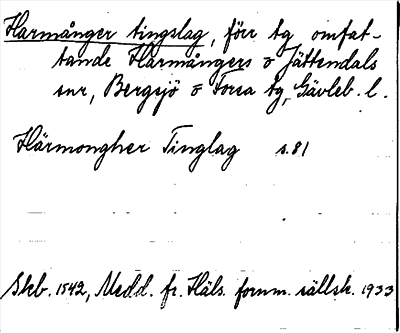 Harmånger tingslag, förr tg omfat-
tande Harmångers o Jättendals
snr, Bergsjö o Forsa tg, Gävleb. l.
Härmongher Tinglag s. 81
Skb. 1542, Medd. fr. Häls. fornm. sällsk. 1933